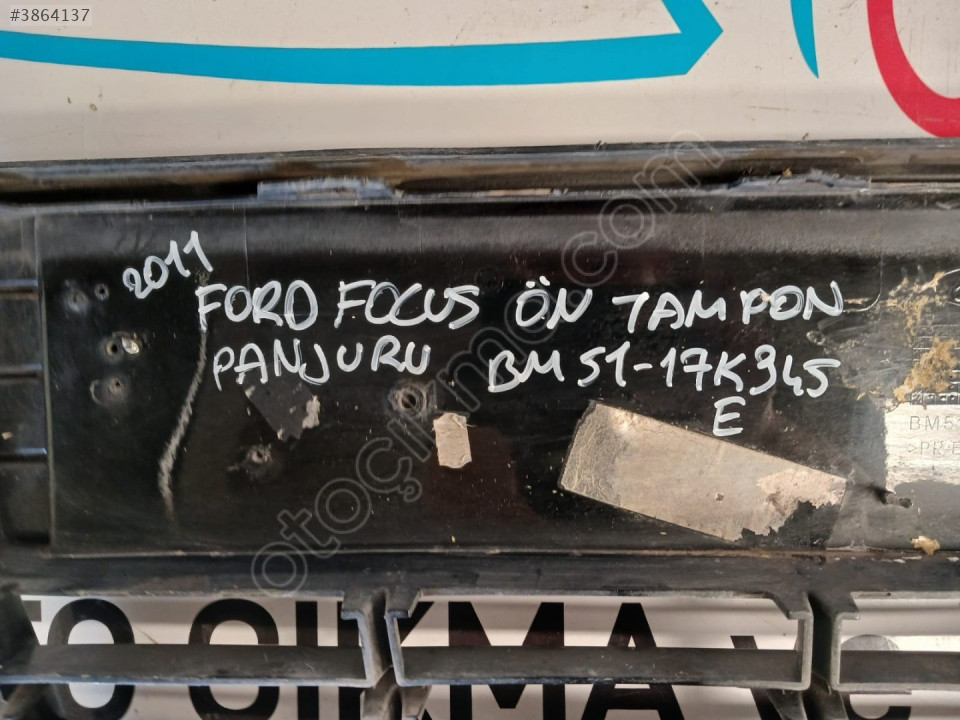 #3864137
2011
FORD FOCUS ÖN TAMPON
PANJURU BM51-17K945
E
BM5
>PP-E
otoçıkmo.com
TO ÇIKMA Ve